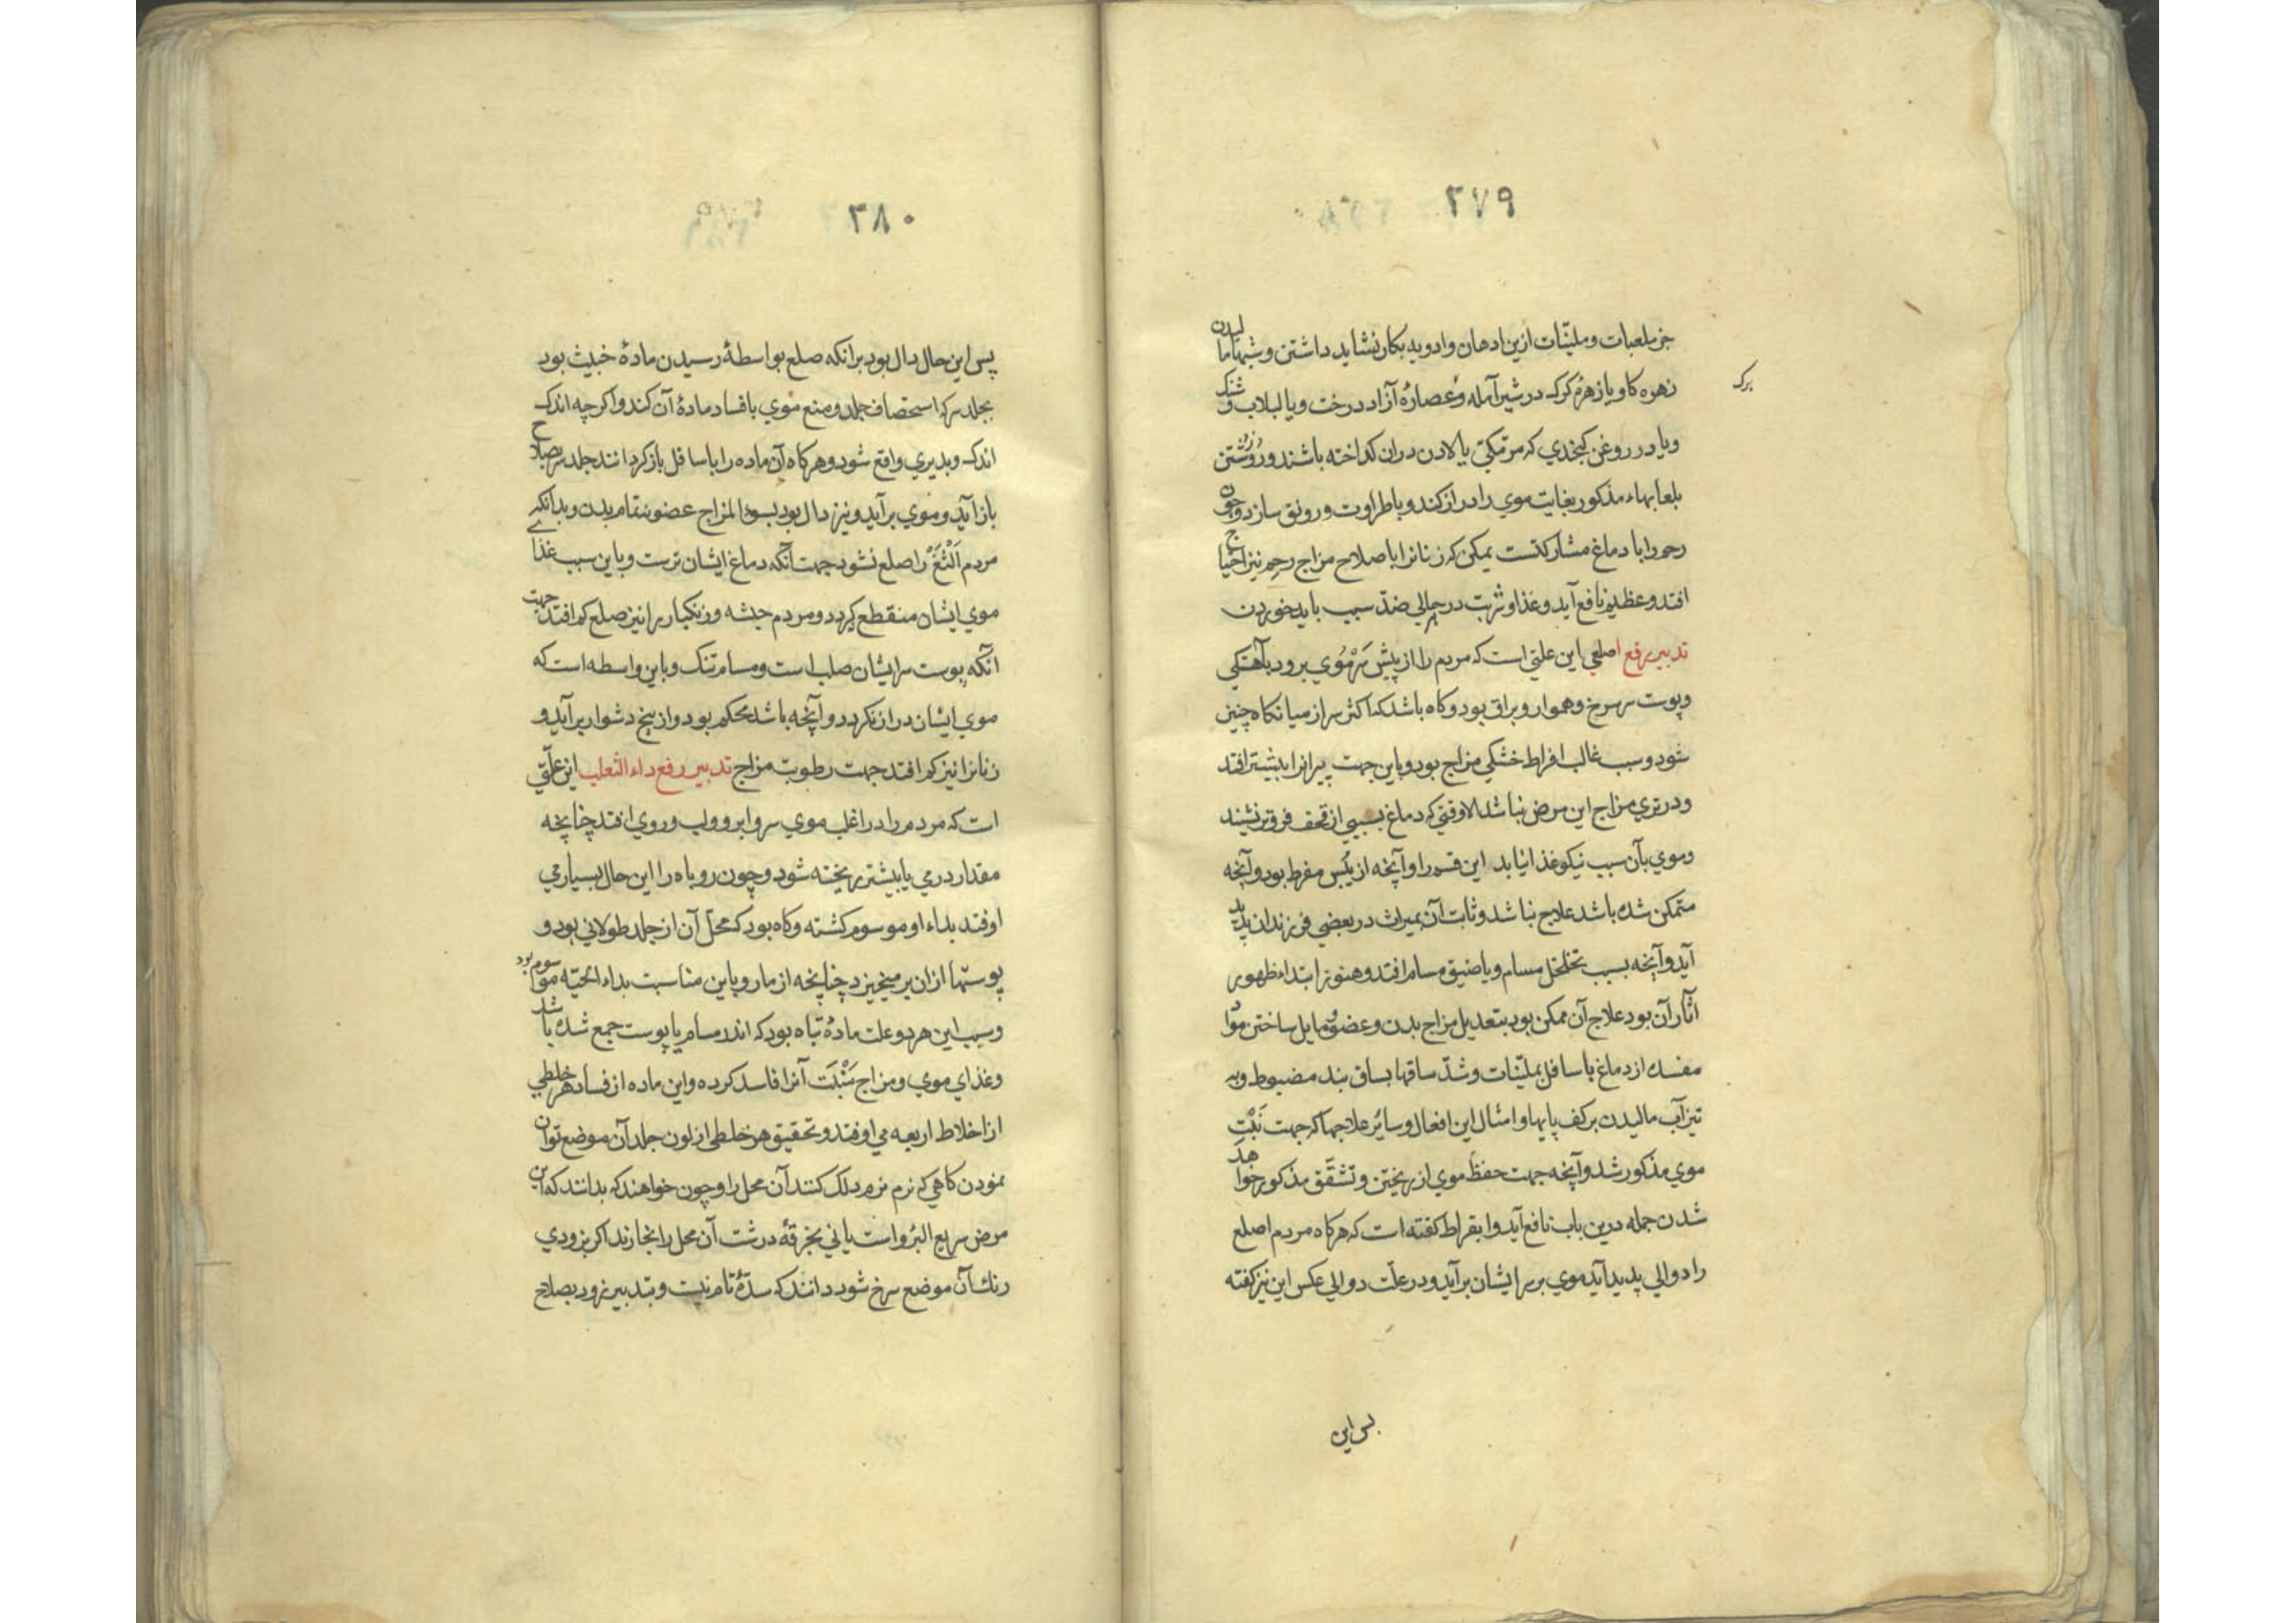 ۲۷۹
جز ملعبات و ملینات ازین ادهان و ادویه بکار نشاید داشتن و شبها مالیدن
زهره کاو یا زهرهٔ کرک در شیر آمله و عصارهٔ آزاد درخت و یا لبلاب و
برک
و یا در روغن کنجدی که مر مکی یا لادن دران کداخته باشند و روز شستن
بلعابهاء مذکور بغایت موی را دراز کند و با طراوت و رونق سازد و چون
رحم را با دماغ مشارکتست یمکن که زنانرا باصلاح مزاج رحم نیز احتیاج
افتد و عظیم نافع آید و غذا و شربت در جمالی ضد سبب باید خوردن
تدبیر رفع اصلعی این علتی است که مردم را از پیش سر موی برود بآهستکی
و پوست سر سرخ و هموار و براق بود و کاه باشد که اکثر سر از میانکاه چنین
شود و سبب غالب افراط خشکی مزاج بود و باین جهت پیرانرا بیشتر افتد
و در تری مزاج این مرض نباشد الا وقتی که دماغ بسببی از قحف فروتر نشیند
و موی بآن سبب نیکو غذا نیابد این قسم را و آنچه از یبس مفرط بود و آنچه
متمکن شده باشد علاج نباشد و ثابت آن بمیراث در بعضی فرزندان پدید
آید و آنچه بسبب تخلخل مسام و یا ضیق مسام افتد و هنوز ابتداء ظهور
آثار آن بود علاج آن ممکن بود بتعدیل مزاج بدن و عضو و مایل ساختن مواد
مفسده از دماغ باسافل بملینات و شد ساقها بساق بند مضبوط و به
تیزآب مالیدن بر کف پایها و امثال این افعال و سایر علاجها که جهت نبت
موی مذکور شد و آنچه جهت حفظ موی از ریختن و تشقق مذکور خواهد
شدن جمله درین باب نافع آید و ابقراط کفته است که هرکاه مردم اصلع
را دوالی پدید آید موی بر سر ایشان برآید و در علت دوالی عکس این نیز کفته
پس این
۲۸۰
پس این حال دال بود برانکه صلع بواسطهٔ رسیدن مادهٔ خبیث بود
بجلد سر که استحصاف جلد و منع موی بافساد مادهٔ آن کند و اکرچه اندک
اندک و بدیری واقع شود و هرکاه آن ماده را باسافل بازکردانند جلد سر بصلاح
باز آید و موی برآید و نیز دال بود بسوء المزاج عضو نه تمام بدن و بدانکه
مردم اَلْثَغْ را صلع نشود جهت آنکه دماغ ایشان ترست و باین سبب غذاے
موی ایشان منقطع نکردد و مردم حبشه و زنکبار را نیز صلع کم افتد جهت
آنکه پوست سر ایشان صلب است و مسام تنک و باین واسطه است که
موی ایشان دراز نکردد و آنچه باشد محکم بود و از بیخ دشوار برآید و
زنانرا نیز کم افتد جهت رطوبت مزاج تدبیر رفع داء الثعلب این علتی
است که مردم را در اغلب موی سر و ابرو و لب و روی افتد چنانچه
مقدار درمی یا بیشتر ریخته شود و چون روباه را این حال بسیار می
اوفتد بداء او موسوم کشته و کاه بود که محل آن از جلد طولانی بود و
پوستها ازان بر میخیزد چنانچه از مار و باین مناسبت بداء الحیّه موسوم بود
و سبب این هر دو علت مادهٔ تباه بود که اندر مسام یا پوست جمع شده باشد
و غذای موی و مزاج مَنْبَت آنرا فاسد کرده و این ماده از فساد هر خلطی
از اخلاط اربعه می اوفتد و تحقیق هر خلطی از لون جلد آن موضع توان
نمودن کاهی که نرم نرم دلک کنند آن محل را و چون خواهند که بدانند که این
مرض سریع البُرو است یا نی بخرقهٔ درشت آن محل را بخارند اکر بزودی
رنک آن موضع سرخ شود دانند که سدّهٔ تام نیست و بتدبیر زود بصلاح